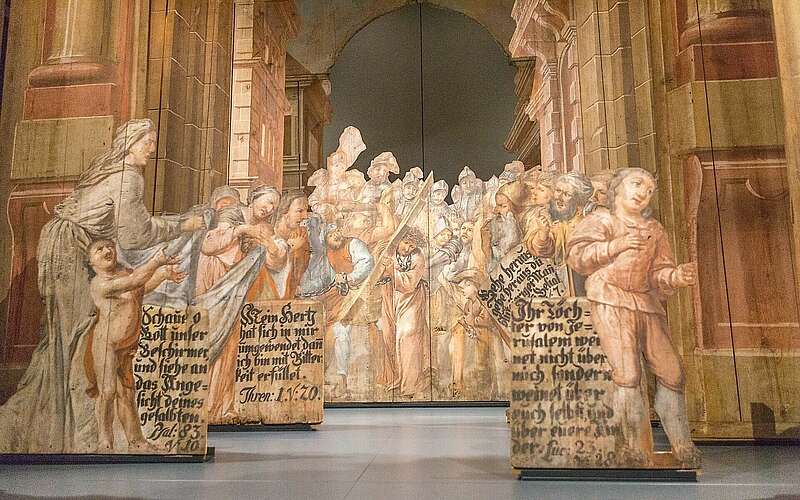 Schaue o
Gott unser
Beschirmer
und siehe an
das Ange-
sicht deines
gesalbten
Psal: 83.
V. 10.
Mein Hertz
hat sich in mir
umgewendet dañ
ich bin mit Bitter
keit erfüllet.
Thren: 1. V: 20.
Gehe heraus
Ihr Töch-
ter von Je-
rusalem wei
net nicht über
mich, sondern
weinet über
euch selbst und
über euere
der. Luc: 23
28